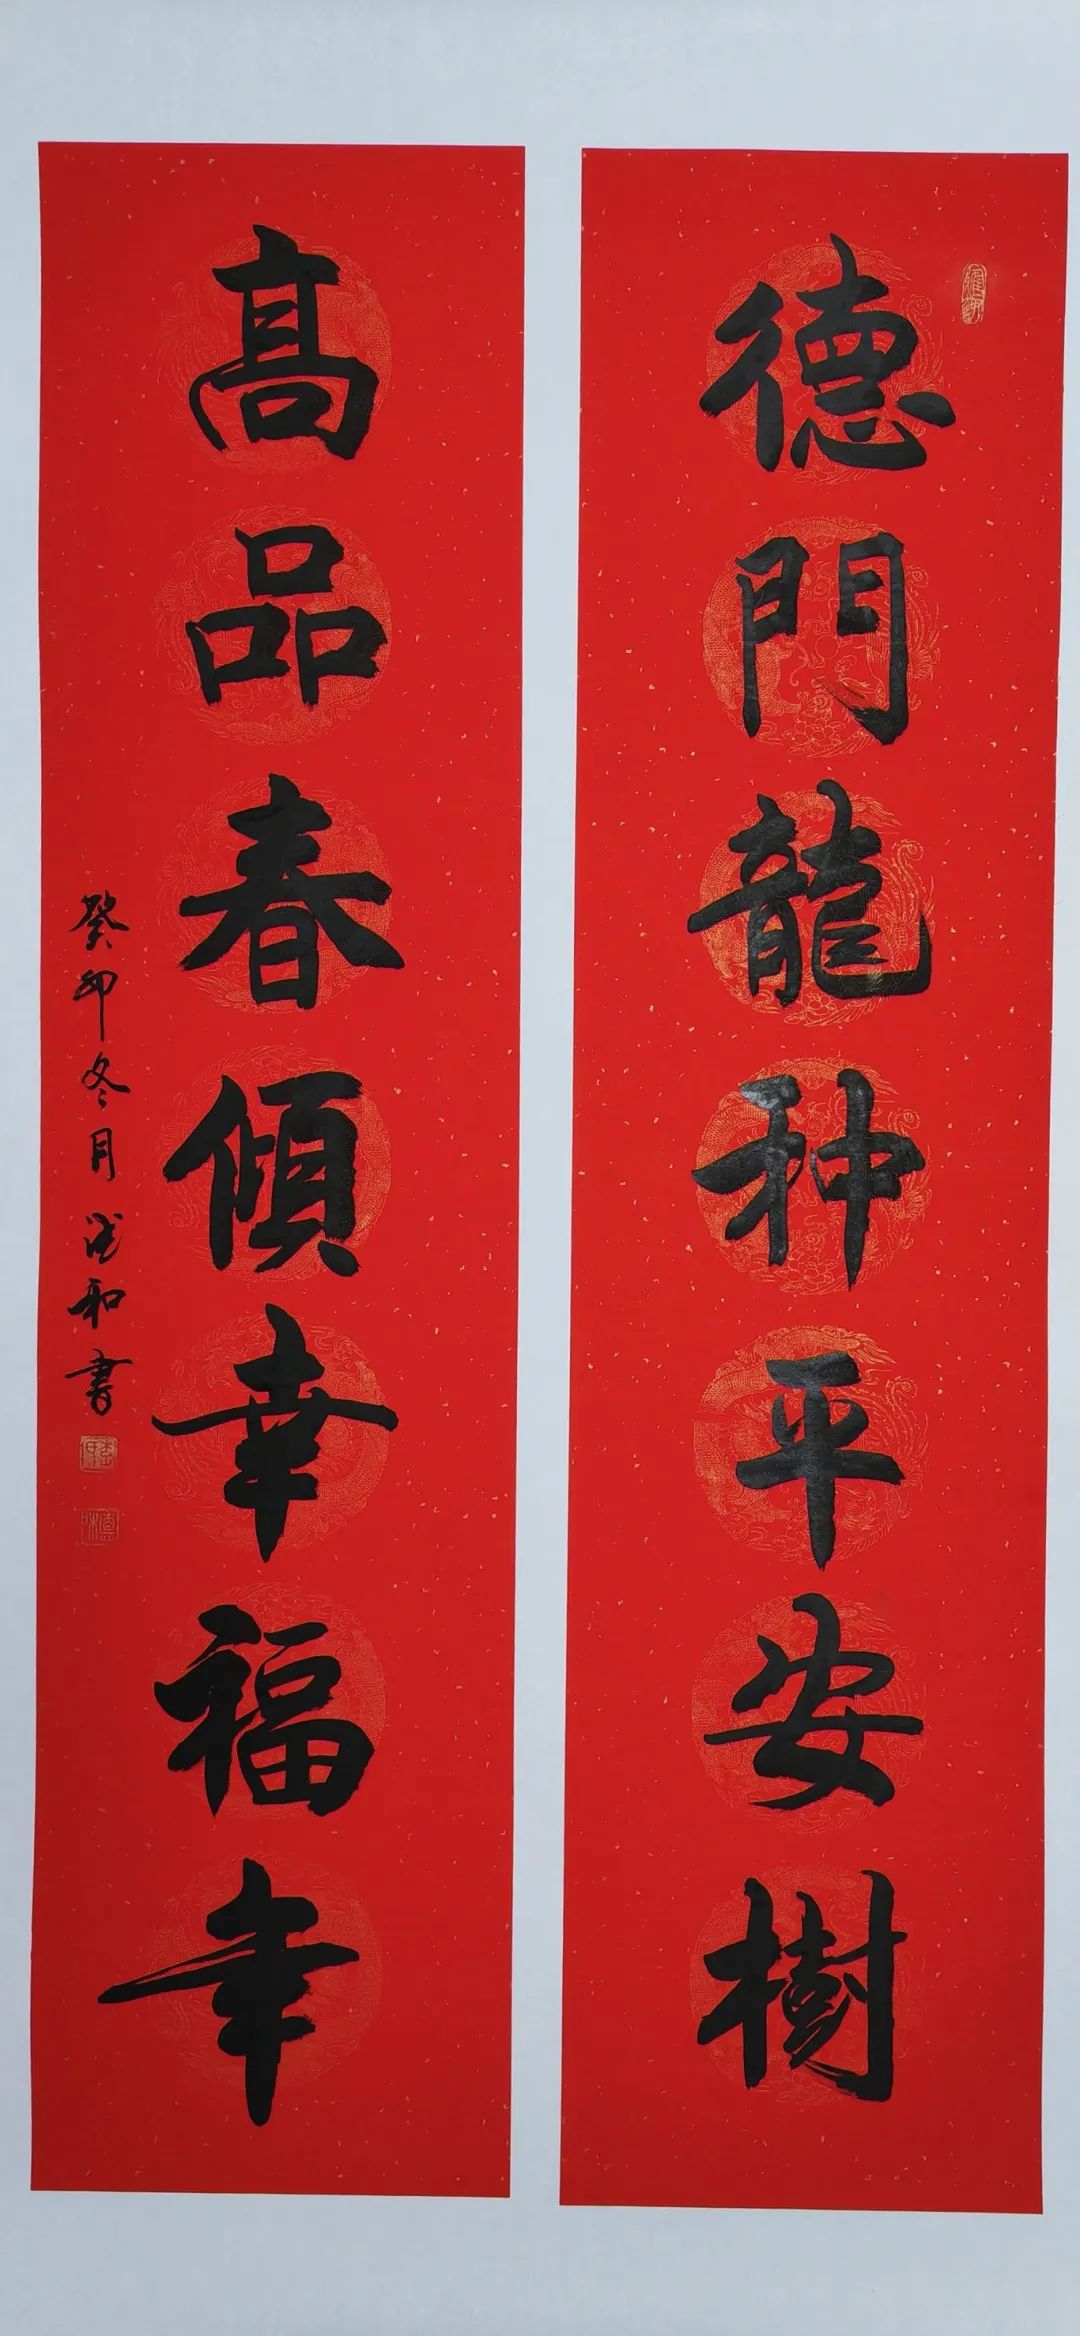 德門龍种平安樹
髙品春傾幸福年
癸卯冬月和書